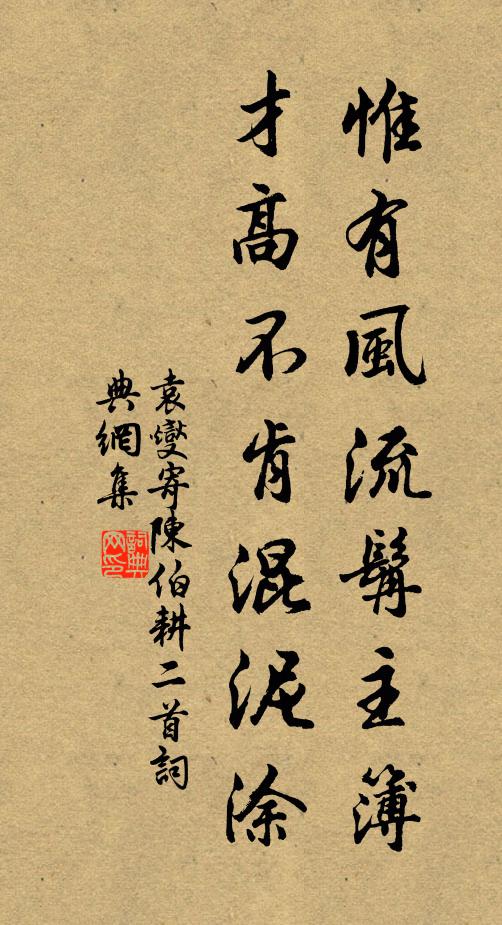 惟有風流髯主簿
才高不肯混泥涂
袁燮寄陳伯耕二首詞
典網集
詞典网印